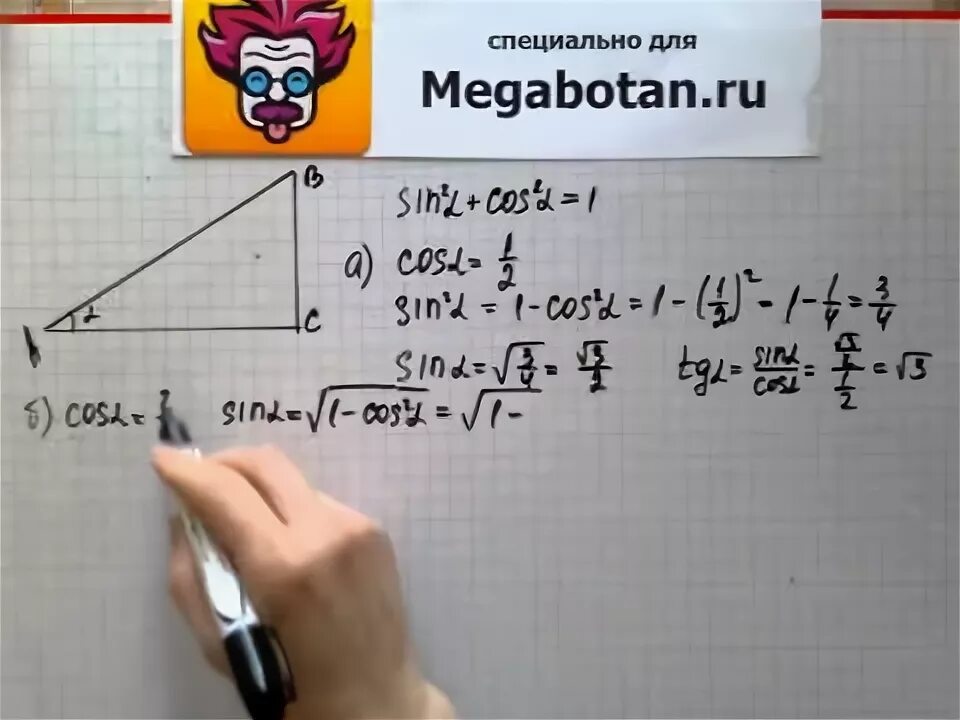 специально для
Megabotan.ru
B
α
C
sin²α + cos²α = 1
а) cosα = 1/2
sin²α = 1 - cos²α = 1 - (1/2)² - 1 - 1/4 = 3/4
sinα = √(3/4) = √3/2 tgα = sinα/cosα = (√3/2)/(1/2) = √3
б) cosα = sinα = √(1 - cos²α) = √(1 -